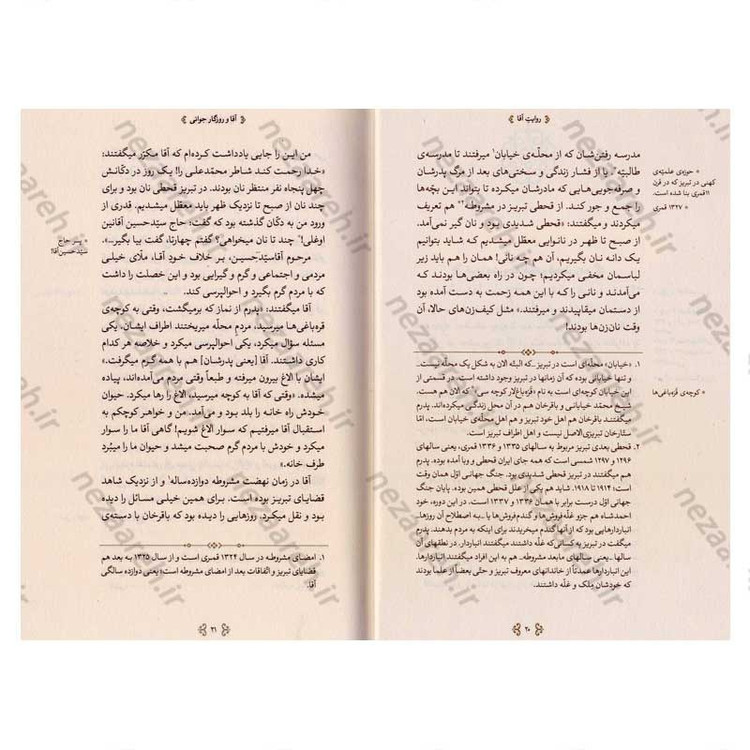 روایتِ آقا
مدرسه رفتن‌شان که از محلّه‌ی خیابان۱ میرفتند تا مدرسه‌ی
طالبیّه*، یا از فشار زندگی و سختی‌های بعد از مرگ پدرشان
و صرفه‌جویی‌هایی که مادرشان میکرده تا بتواند این بچّه‌ها
را جمع و جور کند. از قحطی تبریز در مشروطه۲* هم تعریف
میکردند و میگفتند: «قحطی شدیدی بود و نان گیر نمی‌آمد.
از صبح تا ظهر در نانوایی معطل میشدیم که شاید بتوانیم
یک دانه نان بگیریم، آن هم چه نانی! همان را هم باید زیر
لباسمان مخفی میکردیم؛ چون در راه بعضی‌ها بودند که
می‌آمدند و نانی را که با این همه زحمت به دست آمده بود
از دستمان میقاپیدند و میرفتند.» مثل کیف‌زن‌های حالا، آن
وقت نان‌زن‌ها بودند!
* حوزه‌ی علمیّه‌ی
کهنی در تبریز که در قرن
۱۱ قمری بنا شده است.
* ۱۳۲۷ قمری
۱. «خیابان» محلّه‌ای است در تبریز ـ که البتّه الان به شکل یک محلّه نیست ـ
و تنها خیابانی بوده که آن زمانها در تبریز وجود داشته است. در قسمتی از
این خیابان کوچه‌ای است به نام «قره‌باغ‌لار کوچه سی»* که الان هم هست.
شیخ محمّد خیابانی و باقرخان هم در آن محل زندگی میکرده‌اند. پدرم
میگفتند باقرخان هم اهل خود تبریز و هم اهل محلّه‌ی خیابان است، امّا
ستّارخان تبریزی‌الاصل نیست و اهل اطراف تبریز است.
* کوچه‌ی قره‌باغی‌ها
۲. قحطی بعدی تبریز مربوط به سالهای ۱۳۳۵ و ۱۳۳۶ قمری، یعنی سالهای
۱۲۹۶ و ۱۲۹۷ شمسی است که همه جای ایران قحطی و وبا آمده بوده. پدرم
هم میگفتند در تبریز قحطی شدیدی بود. جنگ جهانی اوّل همان وقت
است؛ ۱۹۱۴ تا ۱۹۱۸. شاید هم یکی از علل قحطی همین بوده. پایان جنگ
جهانی اوّل درست برابر با همان ۱۳۳۶ و ۱۳۳۷ است. در این دوره، خود
احمدشاه هم جزو غلّه‌فروش‌ها و گندم‌فروش‌ها یا ـ به اصطلاح آن روزها ـ
انباردارهایی بود که از آنها گندم میخریدند برای اینکه به مردم بدهند. پدرم
میگفت در تبریز به کسانی که غلّه داشتند میگفتند انباردار. در نطقهای آن
سالها ـ یعنی سالهای مابعد مشروطه ـ هم به این افراد میگفتند انباردارها.
این انباردارها عمدتاً از خاندانهای معروف تبریز و حتّی بعضاً از علما بودند
که خودشان ملک و غلّه داشتند.
۲۰
آقا و روزگار جوانی
من این را جایی یادداشت کرده‌ام که آقا مکرّر میگفتند:
«خدا رحمت کند شاطر محمّدعلی را! یک روز در دکّانش
چهل پنجاه نفر منتظر نان بودند. در تبریز قحطی نان بود و برای
چند نان از صبح تا نزدیک ظهر باید معطل میشدیم. قدری از
ورود من به دکّان گذشته بود که گفت: حاج سیّدحسین آقانین
اوغلی!* چند تا نان میخواهی؟ گفتم چهارتا، گفت بیا بگیر...».
مرحوم آقاسیّدحسین، بر خلاف خود آقا، ملّای خیلی
مردمی و اجتماعی و گرم و گیرایی بود و این خصلت را داشت
که با مردم گرم بگیرد و احوالپرسی کند.
* پسر حاج
سیّدحسین‌آقا!
آقا میگفتند: «پدرم از نماز که برمیگشت، وقتی به کوچه‌ی
قره‌باغی‌ها میرسید، مردم محلّه میریختند اطراف ایشان، یکی
مسئله سؤال میکرد، یکی احوالپرسی میکرد و خلاصه هر کدام
کاری داشتند. آقا [یعنی پدرشان] هم با همه گرم میگرفت.»
ایشان با الاغ بیرون میرفته و طبعاً وقتی مردم می‌آمده‌اند، پیاده
میشده. «وقتی که آقا به کوچه میرسید، الاغ را رها میکرد. حیوان
خودش راه خانه را بلد بود و می‌آمد. من و خواهر کوچکم به
استقبال آقا میرفتیم که سوار الاغ شویم! گاهی آقا ما را سوار
میکرد و خودش با مردم گرم صحبت میشد و حیوان ما را میبُرد
طرف خانه.»
آقا در زمان نهضت مشروطه دوازده‌ساله۱ و از نزدیک شاهد
قضایای تبریز بوده است. برای همین خیلی مسائل را دیده
بود و نقل میکرد. روزهایی را دیده بود که باقرخان با دسته‌ی
۱. امضای مشروطه در سال ۱۳۲۴ قمری است و از سال ۱۳۲۵ به بعد هم
قضایای تبریز و اتّفاقات بعد از امضای مشروطه است؛ یعنی دوازده سالگی
آقا.
۲۱
nezaareh.ir